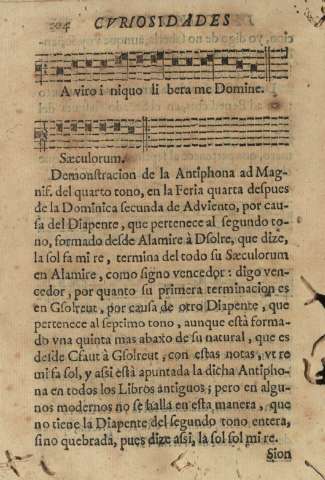 204 CVRIOSIDADES
A viro i niquo li bera me Domine.
Sæculorum.
Demonstracion de la Antiphona ad Mag-
nif. del quarto tono, en la Feria quarta despues
de la Dominica secunda de Adviento, por cau-
sa del Diapente, que pertenece al segundo to-
no, formado desde Alamire à Dsolre, que dize,
la sol fa mi re, termina del todo su Sæculorum
en Alamire, como signo vencedor: digo ven-
cedor, por quanto su primera terminacion es
en Gsolreut, por causa de otro Diapente, que
pertenece al septimo tono, aunque està forma-
do vna quinta mas abaxo de su natural, que es
desde Cfaut à Gsolreut, con estas notas, vt re
mi fa sol, y assi està apuntada la dicha Antipho-
na en todos los Libros antiguos; pero en algu-
nos modernos no se halla en esta manera, que
no tiene la Diapente del segundo tono entera,
sino quebrada, pues dize assi, la sol sol mi re.
Sion